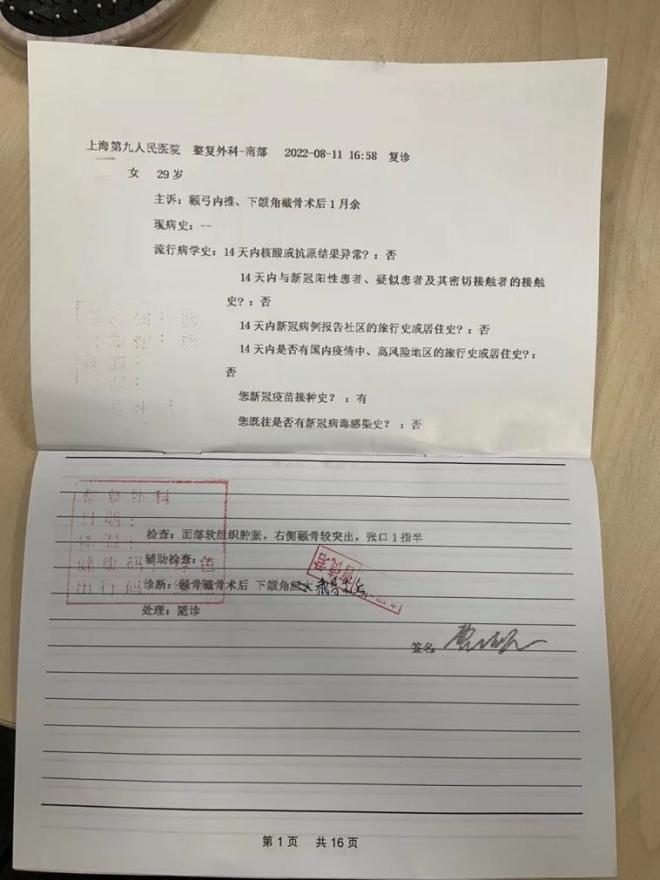 上海第九人民医院 整复外科-南部 2022-08-11 16:58 复诊
女 29岁
主诉：颧弓内推、下颌角截骨术后1月余
现病史：一
流行病学史：14天内核酸或抗原结果异常？：否
14天内与新冠阳性患者、疑似患者及其密切接触者的接触
史？：否
14天内新冠病例报告社区的旅行史或居住史？：否
14天内是否有国内疫情中、高风险地区的旅行史或居住史？：
否
您新冠疫苗接种史？：有
您既往是否有新冠病毒感染史？：否
整复外科
日期：
体温：
健康码：绿色
出行码：
检查：面部软组织肿胀，右侧颧骨较突出，张口1指半
辅助检查：
诊断：颧骨截骨术后 下颌角
处理：随诊
签名：
第1页 共16页